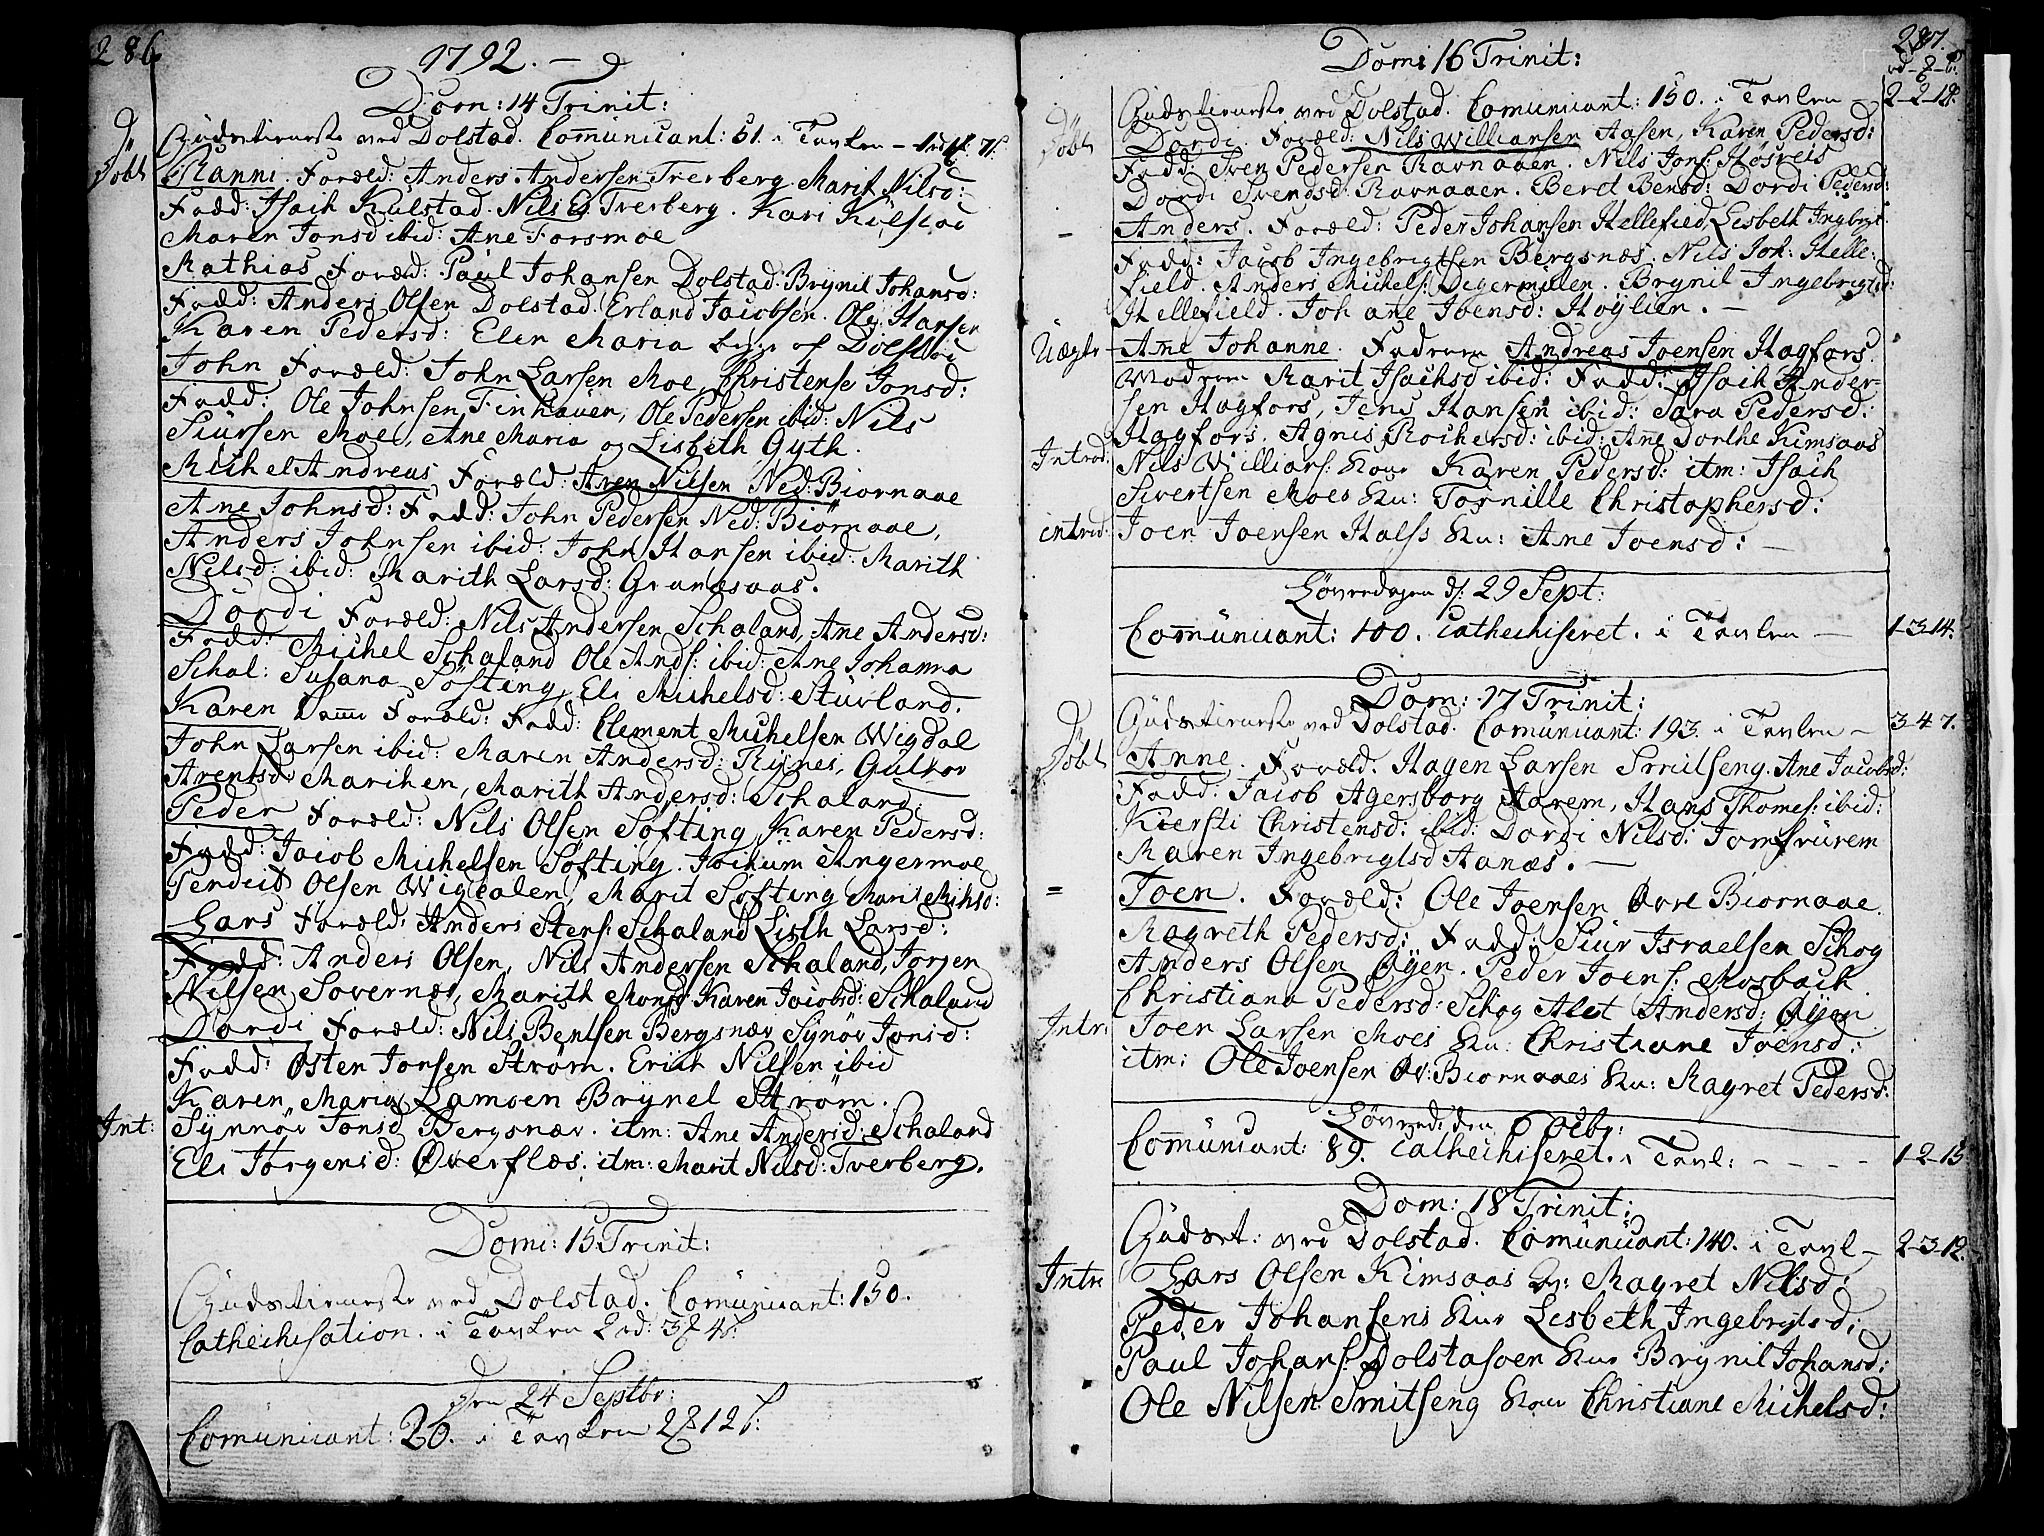 286.
1792. —
Dom: 14 Trinit:
Gudstieneste ved Dolstad. Comunicant: 61. i Tavlen —
Døbt
Ranni. Foræld: Anders Andersen Trerberg. Marit Nilsd:
Fadd: Isach Kulstad. Nils E Trerberg. Kari Kulstad
Maren Jonsd ibid: Ane Forsmoe
Mathias Foræld: Paul Johansen Dolstad. Brÿnil Johansd:
Fadd: Anders Olsen Dolstad. Erland Jacobsen. Ole Hansen
Karen Pedersd: Elen Maria begge af Dolstad
John Foræld: John Larsen Moe, Christense Jonsd:
Fadd: Ole Johnsen Finhauen, Ole Pedersen ibid: Nils
Siursen Moe, Ane Maria og Lisbeth Gyth.
Michel Andreas Foræld: Aren Nilsen Ned: Biornaae
Ane Johnsd: Fadd: John Pedersen Ned: Biörnaae,
Anders Johnsen ibid: John Hansen ibid: Marith
Nilsd: ibid: Marith Larsd: Granaasaas.
Dordi Foræld: Nils Andersen Schaland, Ane Andersd:
Fadd: Michel Schaland Ole Ands: ibid: Ane Johanna
Schal: Susana Söfting, Eli Michelsd: Stuvland.
Karen Foræld: Fadd: Clement Michelsen Wigdal
John Larsen ibid: Maren Andersd: Rÿnes, Gulvor
Arentsd: Marihen, Marith Andersd: Schaland.
Peder Foræld: Nils Olsen Söfting, Karen Pedersd:
Fadd: Jacob Michelsen Söfting. Jochum Angermoe
Olsen Wigdalen, Marit Söfting Marit Miksd:
Lars Foræld: Anders Stens: Schaland Listh Larsd:
Fadd: Anders Olsen, Nils Andersen Schaland, Jorgen
Nilsen Sovernæs, Marith Monsd Karen Jacobsd: Schaland
Dordi Foræld: Nils Bentsen Bergsnæv Sÿnöv Jonsd:
Fadd: Østen Jonsen Ström. Erich Nilsen ibid
Karen Maria Lamoen Brÿnel Ström.
Int: Sÿnnöv Jonsd Bergsnæv. itm: Ane Andersd: Schaland
Eli Jørgensd: Øverfløs. itm: Marit Nilsd: Tverberg.
Domi: 15 Trinit:
Gudstieneste ved Dolstad. Comunicant: 150.
Cathechisation. i Tavlen 2 rd: 3 4
den 24 Septbr:
Comunicant: 26. i Tavlen 2 12
287.
Dom: 16 Trinit:
Døbt
Gudstieneste ved Dolstad. Comunicant: 150. i Tavlen — 2-2-12.
Dordi. Foræld: Nils Williansen Aasen, Karen Pedersd:
Fadd: Sven Pedersen Ravnaaen. Nils Jons: Høsveis
Dordi Svendsd: Ravnaaen. Beret Bensd: Dordi Pedersd:
— Anders. Foræld: Peder Johansen Hellefield, Lisbeth Ingbrgt
Fadd: Jacob Ingebrigtsen Bergsnæs. Nils Joh: Helle:
field. Anders Michels: Degermillen. Brynil Ingebrigtsd:
Hellefield. Johane Joensd: Høylien. —
Uægte Ane Johanne. Faderen Andreas Joensen Hagfors.
Moderen Marit Isachsd ibid: Fadd: Isach Ander-
sen Hagfors, Jens Hansen ibid: Sara Pedersd:
Hagfors. Agnis Rochersd: ibid: Ane Dorthe Kimsaas
Introd: Nils Willians: Kone Karen Pedersd: itm: Isach
Sivertsen Moes Ku: Tornille Christophersd:
introd: Joen Joensen Halss Ku: Ane Joensd: —
Løverdagen d: 29 Sept:
Comunicant: 100. Cathechiseret. i Tavlen — 1-3-14.
Dom: 17 Trinit:
Døbt
Gudstieneste ved Dolstad. Comunicant: 193. i Tavlen — 3-4-7.
Anne. Foræld: Hagen Larsen Smitseng. Ane Jacobsd:
Fadd: Jacob Agersborg Aarem, Hans Thomes: ibid:
Kiersti Christensd: ibid: Dordi Nilsd: Jomfrurem
Maren Ingebrigtsd Aanæs. —
= Joen. Foræld: Ole Joensen Øvre Biornaae.
Magreth Pedersd: Fadd: Siur Israelsen Schog
Anders Olsen Øyen. Peder Joens: Mosbach
Christiana Pedersd: Schog Alet Andersd: Øÿen
Intr: Joen Larsen Moes Ku: Christiane Joensd:
itm: Ole Joensen Øv: Biornaaes Ku: Magret Pedersd:
Løverd: den 6 Octbr:
Comunicant: 89. Cathechiseret. i Tavl: — — — — 1-2-15
Dom: 18 Trinit:
Gudst: ved Dolstad. Comunicant: 140. i Tavl — 2-3-12.
Intr: Lars Olsen Kimsaas Ku: Magret Nilsd:
Peder Johansens Kue Lisbeth Ingebrigtsd:
Paul Johans: Dolstadoen Kue Brÿnil Johansd:
Ole Nilsen Smitseng Kone Christiane Michelsd: